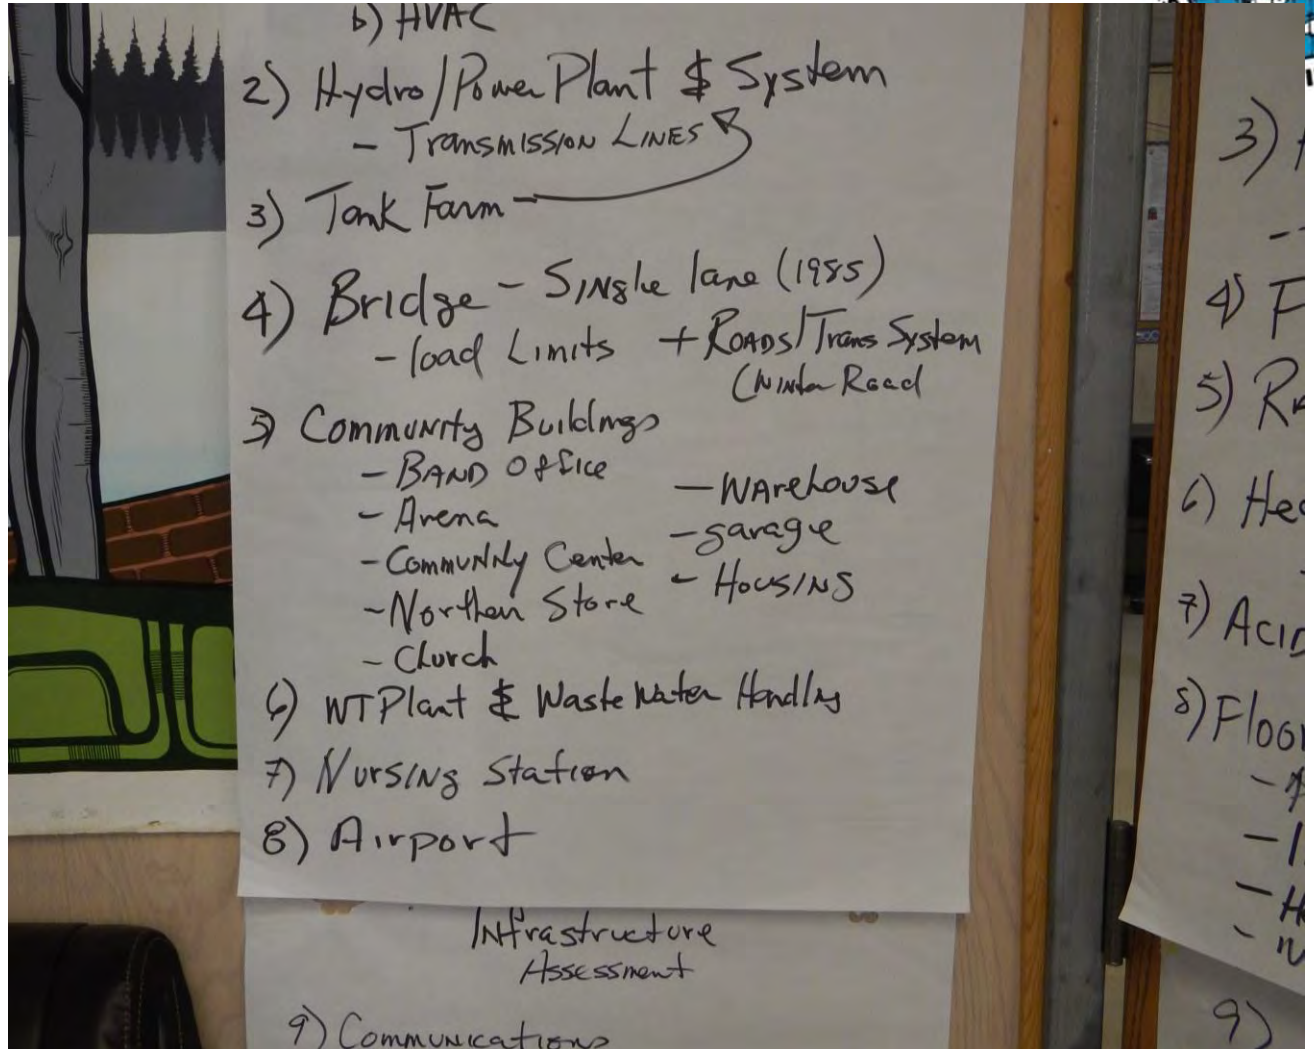 b) HVAC
2) Hydro/Power Plant & System
- Transmission Lines
3) Tank Farm -
4) Bridge - Single lane (1985)
- load Limits + Roads/Trans System
(Winter Road
5) Community Buildings
- Band Office
- Arena
- Community Center
- Northern Store
- Church
- Warehouse
- garage
- Housing
6) WT Plant & Waste Water Handling
7) Nursing Station
8) Airport
Infrastructure
Assessment
9) Communications
3)
4) F
5)
6) Hea
7) Acid
8) Floor
9)